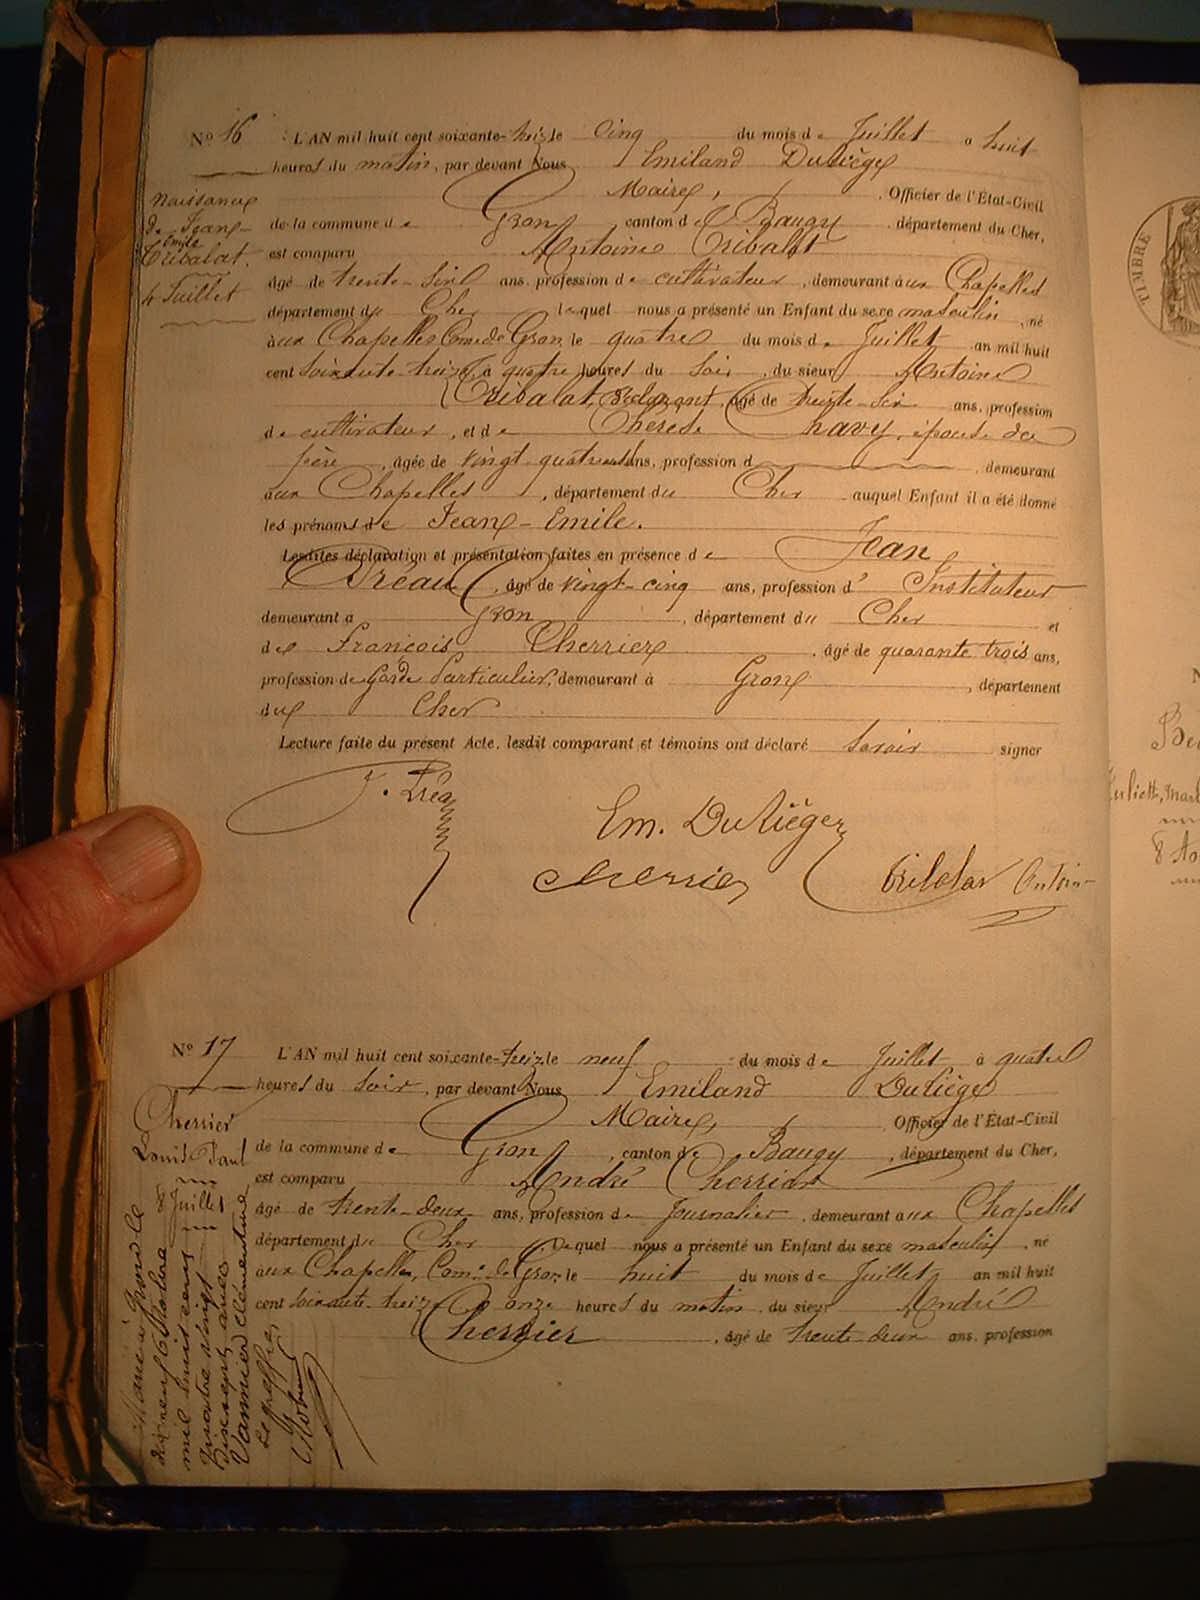 N° 16
L'AN mil huit cent soixante-treize le Cinq du mois de Juillet à huit
heures du matin, par devant Nous Emiland DuLiège
Maire, Officier de l'État-Civil
de la commune de Gron canton de Baugy, département du Cher,
est comparu Antoine Tribalat
âgé de trente-six ans, profession de cultivateur, demeurant aux Chapelles
département du Cher lequel nous a présenté un Enfant du sexe masculin, né
aux Chapelles Com. de Gron, le quatre du mois de Juillet an mil huit
cent soixante-treize, à quatre heures du soir, du sieur Antoine
Tribalat, déclarant, âgé de trente-six ans, profession
de cultivateur, et de Thérèse Chavy, épouse du
père, âgée de vingt-quatre ans, profession d, demeurant
aux Chapelles, département du Cher auquel Enfant il a été donné
les prénoms de Jean-Emile.
Lesdites déclaration et présentation faites en présence de Jean
Préau, âgé de vingt-cinq ans, profession d'Instituteur
demeurant à Gron, département du Cher et
de François Cherrier, âgé de quarante trois ans,
profession de Garde Particulier, demeurant à Gron, département
du Cher
Lecture faite du présent Acte, lesdit comparant et témoins ont déclaré savoir signer
Naissance
de Jean-
Emile
Tribalat.
4 Juillet
J. Préau
Em. DuLiège
Cherrier Tribalat Antoine
N° 17
L'AN mil huit cent soixante-treize le neuf du mois de Juillet à quatre
heures du soir, par devant Nous Emiland DuLiège
Maire, Officier de l'État-Civil
de la commune de Gron, canton de Baugy, département du Cher,
est comparu André Cherrier
âgé de trente-deux ans, profession de journalier, demeurant aux Chapelles
département du Cher, lequel nous a présenté un Enfant du sexe masculin, né
aux Chapelles, Com. de Gron, le huit du mois de Juillet an mil huit
cent soixante-treize à onze heures du matin, du sieur André
Cherrier, âgé de trente-deux ans, profession
Cherrier
Louis Paul
8 Juillet
Marié à Gron le
dix neuf Octobre
mil huit cent
quatre vingt
dix sept avec
Vannier Clémentine
Le greffier
TIMBRE
Juliette, Marie
8 Ao